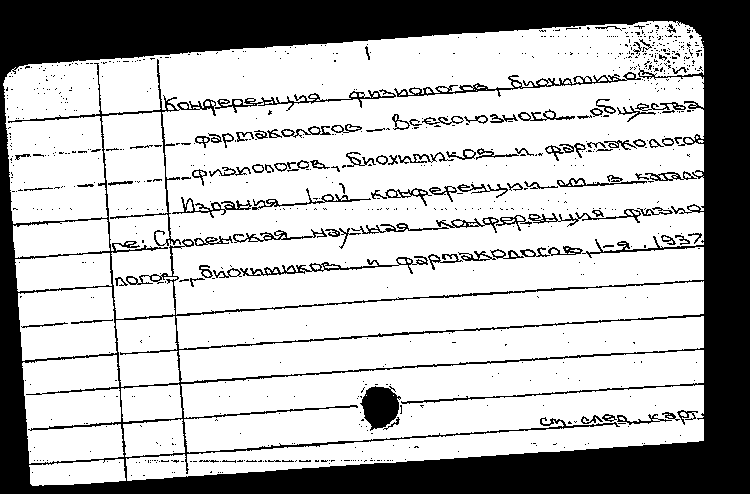 Конференция физиологов, биохимиков и
фармакологов Всесоюзного общества
физиологов, биохимиков и фармакологов
Издания 1-ой конференции см. в катало
ге: Смоленская научная конференция физио-
логов, биохимиков и фармакологов, 1-я. 1937.
см. след. карт.